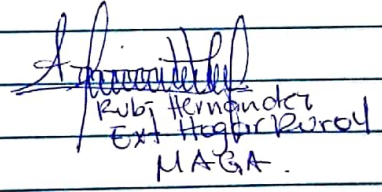 Rubi Hernandez
Ext Hogar Rural
MAGA.